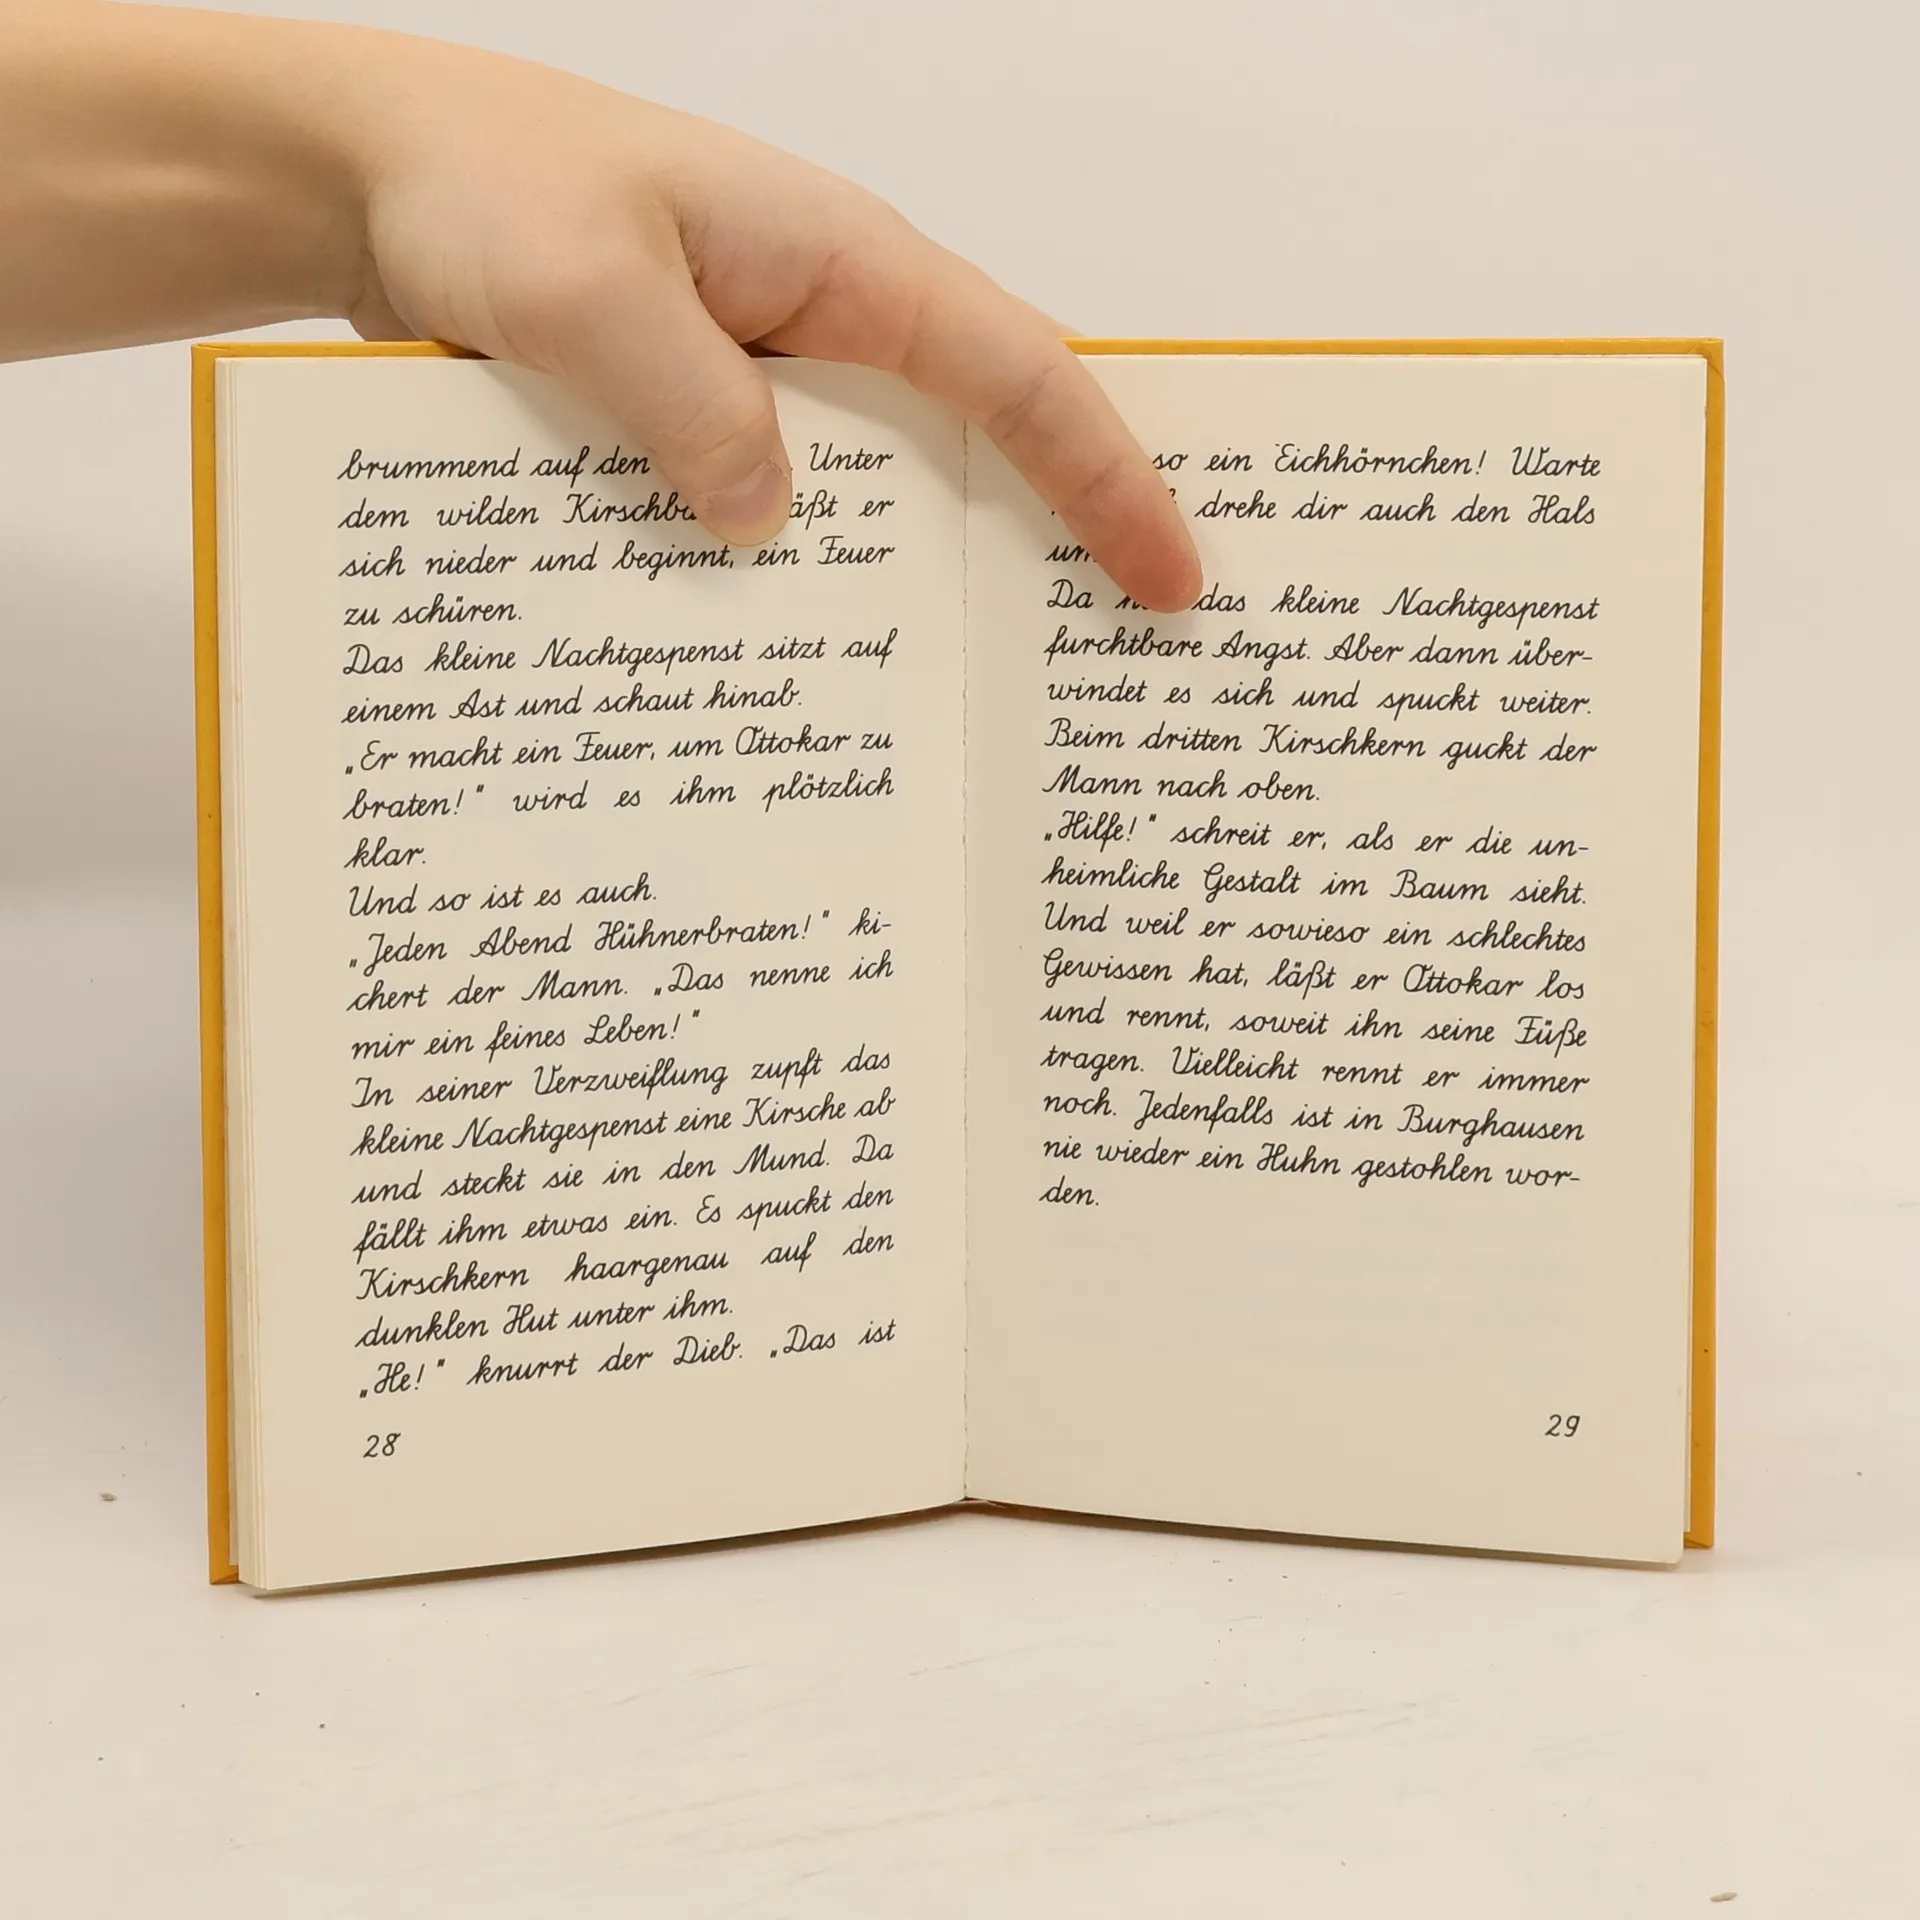 brummend auf den Unter
dem wilden Kirschba äßt er
sich nieder und beginnt, ein Feuer
zu schüren.
Das kleine Nachtgespenst sitzt auf
einem Ast und schaut hinab.
„Er macht ein Feuer, um Ottokar zu
braten!" wird es ihm plötzlich
klar.
Und so ist es auch.
„Jeden Abend Hühnerbraten!" ki-
chert der Mann. „Das nenne ich
mir ein feines Leben!"
In seiner Verzweiflung zupft das
kleine Nachtgespenst eine Kirsche ab
und steckt sie in den Mund. Da
fällt ihm etwas ein. Es spuckt den
Kirschkern haargenau auf den
dunklen Hut unter ihm.
„He!" knurrt der Dieb. „Das ist
28
so ein Eichhörnchen! Warte
drehe dir auch den Hals
um
Da das kleine Nachtgespenst
furchtbare Angst. Aber dann über-
windet es sich und spuckt weiter.
Beim dritten Kirschkern guckt der
Mann nach oben.
„Hilfe!" schreit er, als er die un-
heimliche Gestalt im Baum sieht.
Und weil er sowieso ein schlechtes
Gewissen hat, läßt er Ottokar los
und rennt, soweit ihn seine Füße
tragen. Vielleicht rennt er immer
noch. Jedenfalls ist in Burghausen
nie wieder ein Huhn gestohlen wor-
den.
29